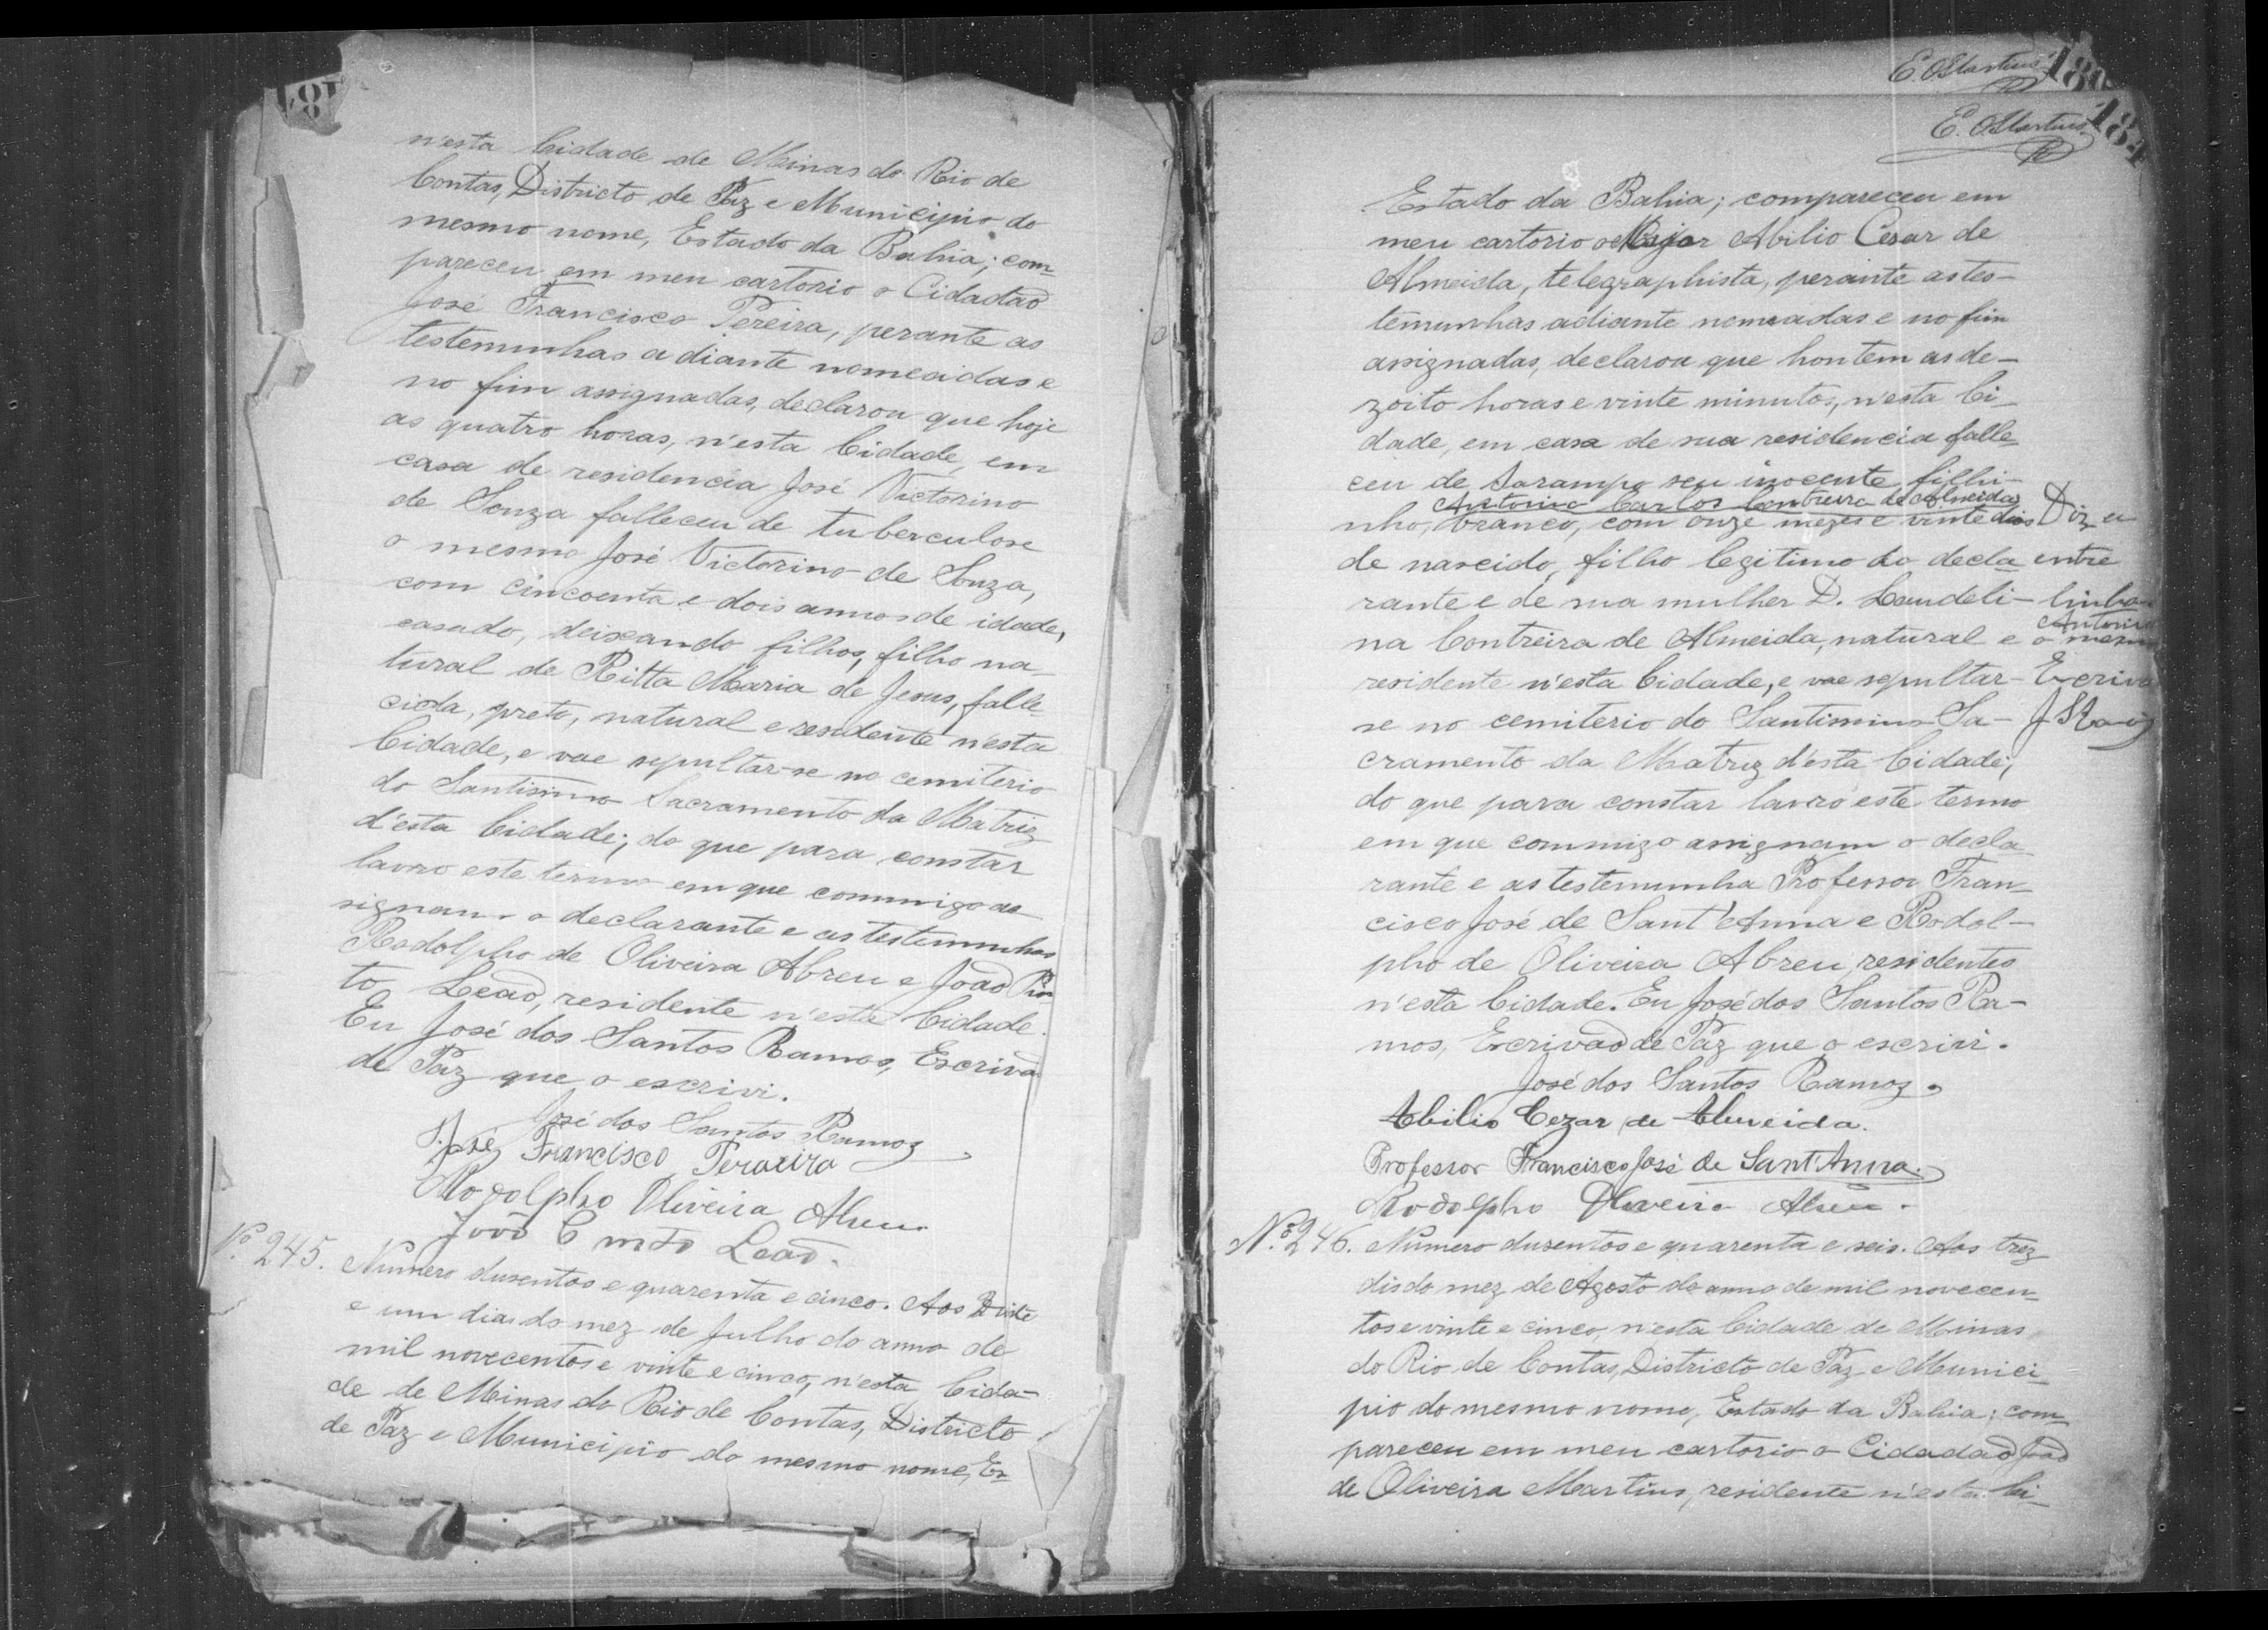 n'esta Cidade de Minas do Rio de
Contas, Districto de Paz e Municipio do
mesmo nome, Estado da Bahia; com-
pareceu em meu cartorio o Cidadão
José Francisco Pereira, perante as
testemunhas a diante nomeadas e
no fim assignadas, declarou que hoje
as quatro horas, n'esta Cidade, em
casa de residencia José Victorino
de Souza falleceu de tuberculose
o mesmo José Victorino de Souza,
com cincoenta e dois annos de idade,
casado, deixando filhos, filho na-
tural de Ritta Maria de Jesus, falle-
cida, preto, natural e residente n'esta
Cidade, e vae sepultar-se no cemiterio
do Santissimo Sacramento da Matriz
d'esta Cidade; do que para constar
lavro este termo em que commigo as-
signam o declarante e as testemunhas
Rodolpho de Oliveira Abreu e João Pin-
to Leão, residente n'esta Cidade.
Eu José dos Santos Ramos, Escrivão
de Paz que o escrivi.
José dos Santos Ramos
José Francisco Peraira
Rodolpho Oliveira Abreu
João Leão.
Nº 245. Numero dusentos e quarenta e cinco. Aos Vinte
e um dias do mez de Julho do anno de
mil novecentos e vinte e cinco, n'esta Cida-
de de Minas do Rio de Contas, Districto
de Paz e Municipio do mesmo nome, Es-
E. O Martins
180
E. O Martins
181
Estado da Bahia; compareceu em
meu cartorio o Major Abilio Cesar de
Almeida, telegraphista, perante as tes-
temunhas adiante nomeadas e no fim
assignadas, declarou que hontem as de-
zoito horas e vinte minutos, n'esta Ci-
dade, em casa de sua residencia falle-
ceu de Sarampo seu inocente filhi-
Antonio Carlos Contreira de Almeida
nho, branco, com onze mezes e vinte dias Diz a
de nascido, filho legitimo do decla- entre
rante e de sua mulher D. Laudeli- linha
Antonio
na Contreira de Almeida, natural e o mesmo
residente n'esta Cidade, e vae sepultar- Escrivão
se no cemiterio do Santissimo Sa- J S Ramos
cramento da Matriz d'esta Cidade;
do que para constar lavro este termo
em que commigo assignam o decla-
rante e as testemunha Professor Fran-
cisco José de Sant'Anna e Rodol-
pho de Oliveira Abreu, residentes
n'esta Cidade. Eu José dos Santos Ra-
mos, Escrivão de Paz que o escrivi.
José dos Santos Ramos.
Abilio Cezar de Almeida.
Professor Francisco José de Sant'Anna.
Rodolpho Oliveira Abreu.
Nº 246. Numero dusentos e quarenta e seis. Aos trez
dis do mez de Agosto do anno de mil novecen-
tos e vinte e cinco, n'esta Cidade de Minas
do Rio de Contas, Districto de Paz e Munici-
pio do mesmo nome, Estado da Bahia; com-
pareceu em meu cartorio o Cidadão João
de Oliveira Martins, residente n'esta Ci-